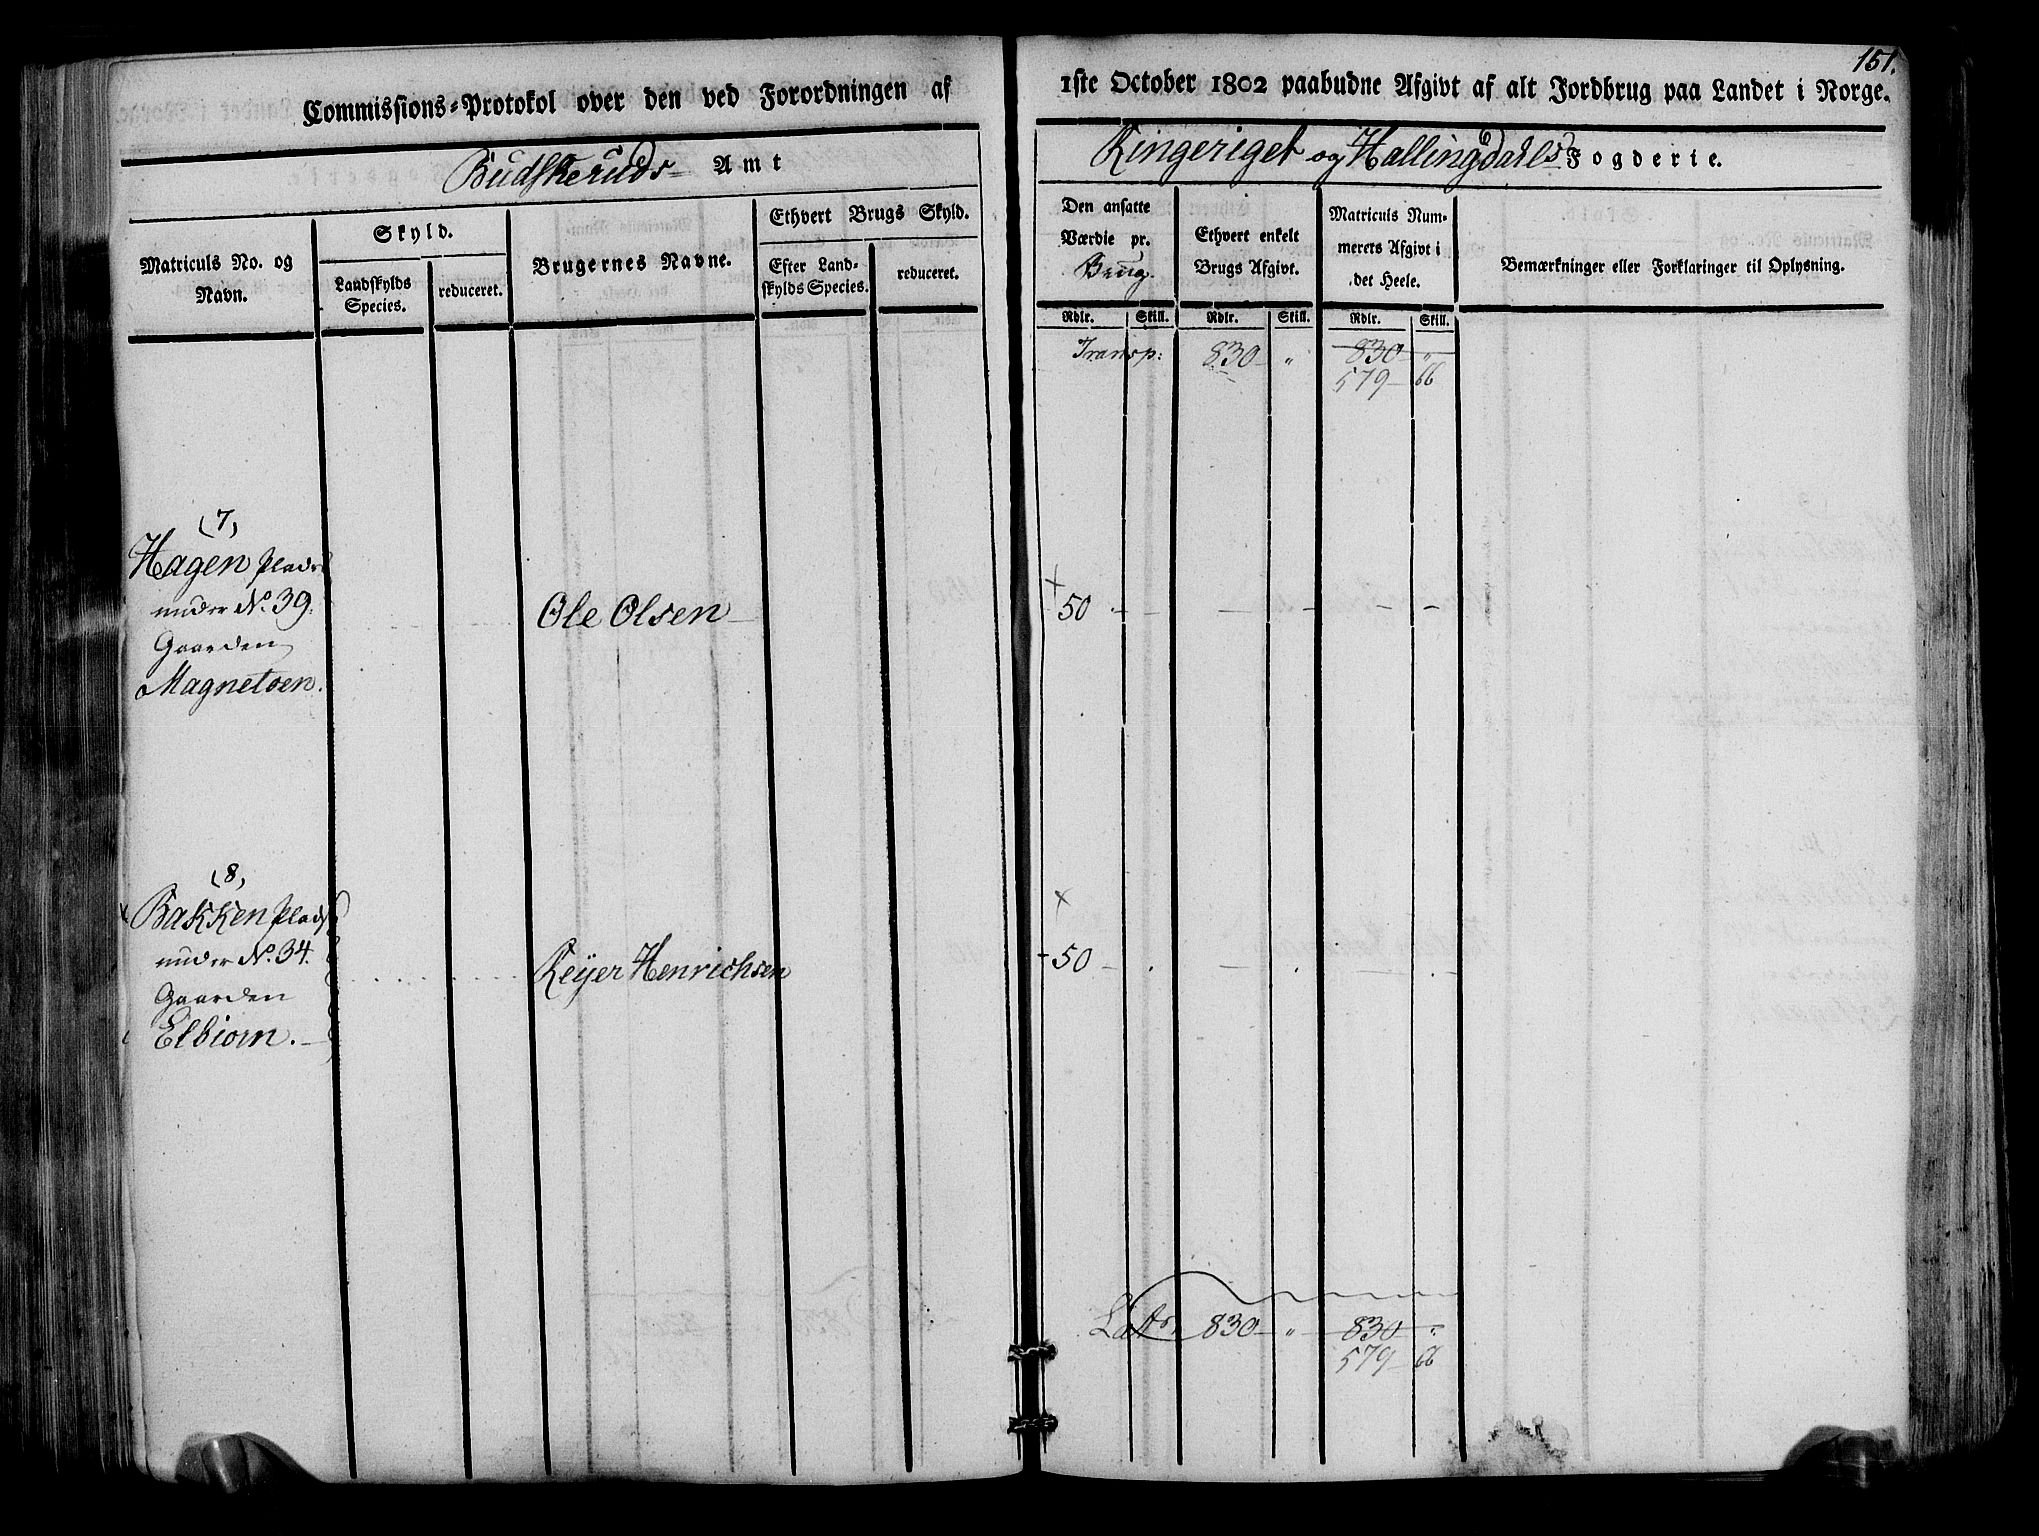 151.
Commissions-Protokol over den ved Forordningen af
1ste October 1802 paabudne Afgivt af alt Jordbrug paa Landet i Norge.
Budskeruds Amt
Ringeriget og Hallingdahls Fogderie.
Matriculs No. og
Navn.
Skyld.
Landskylds
Species.
reduceret.
Brugernes Navne.
Ethvert Brugs Skyld.
Efter Land-
skylds Species.
reduceret.
Den ansatte
Værdie pr.
Brug.
Ethvert enkelt
Brugs Afgivt.
Matriculs Num-
merets Afgivt i
det Heele.
Bemærkninger eller Forklaringer til Oplysning.
Rdlr. Skill. Rdlr. Skill. Rdlr. Skill.
Transp: 830 " 830 "
579 66
(7)
Hagen Plads
under No. 39.
Gaarden
Magnetoen.
Ole Olsen
50
(8)
Bakken Plads
under No. 34.
Gaarden
Elbiorn.
Reijer Henrichsen
50
Latr. 830 " 830 "
579 66